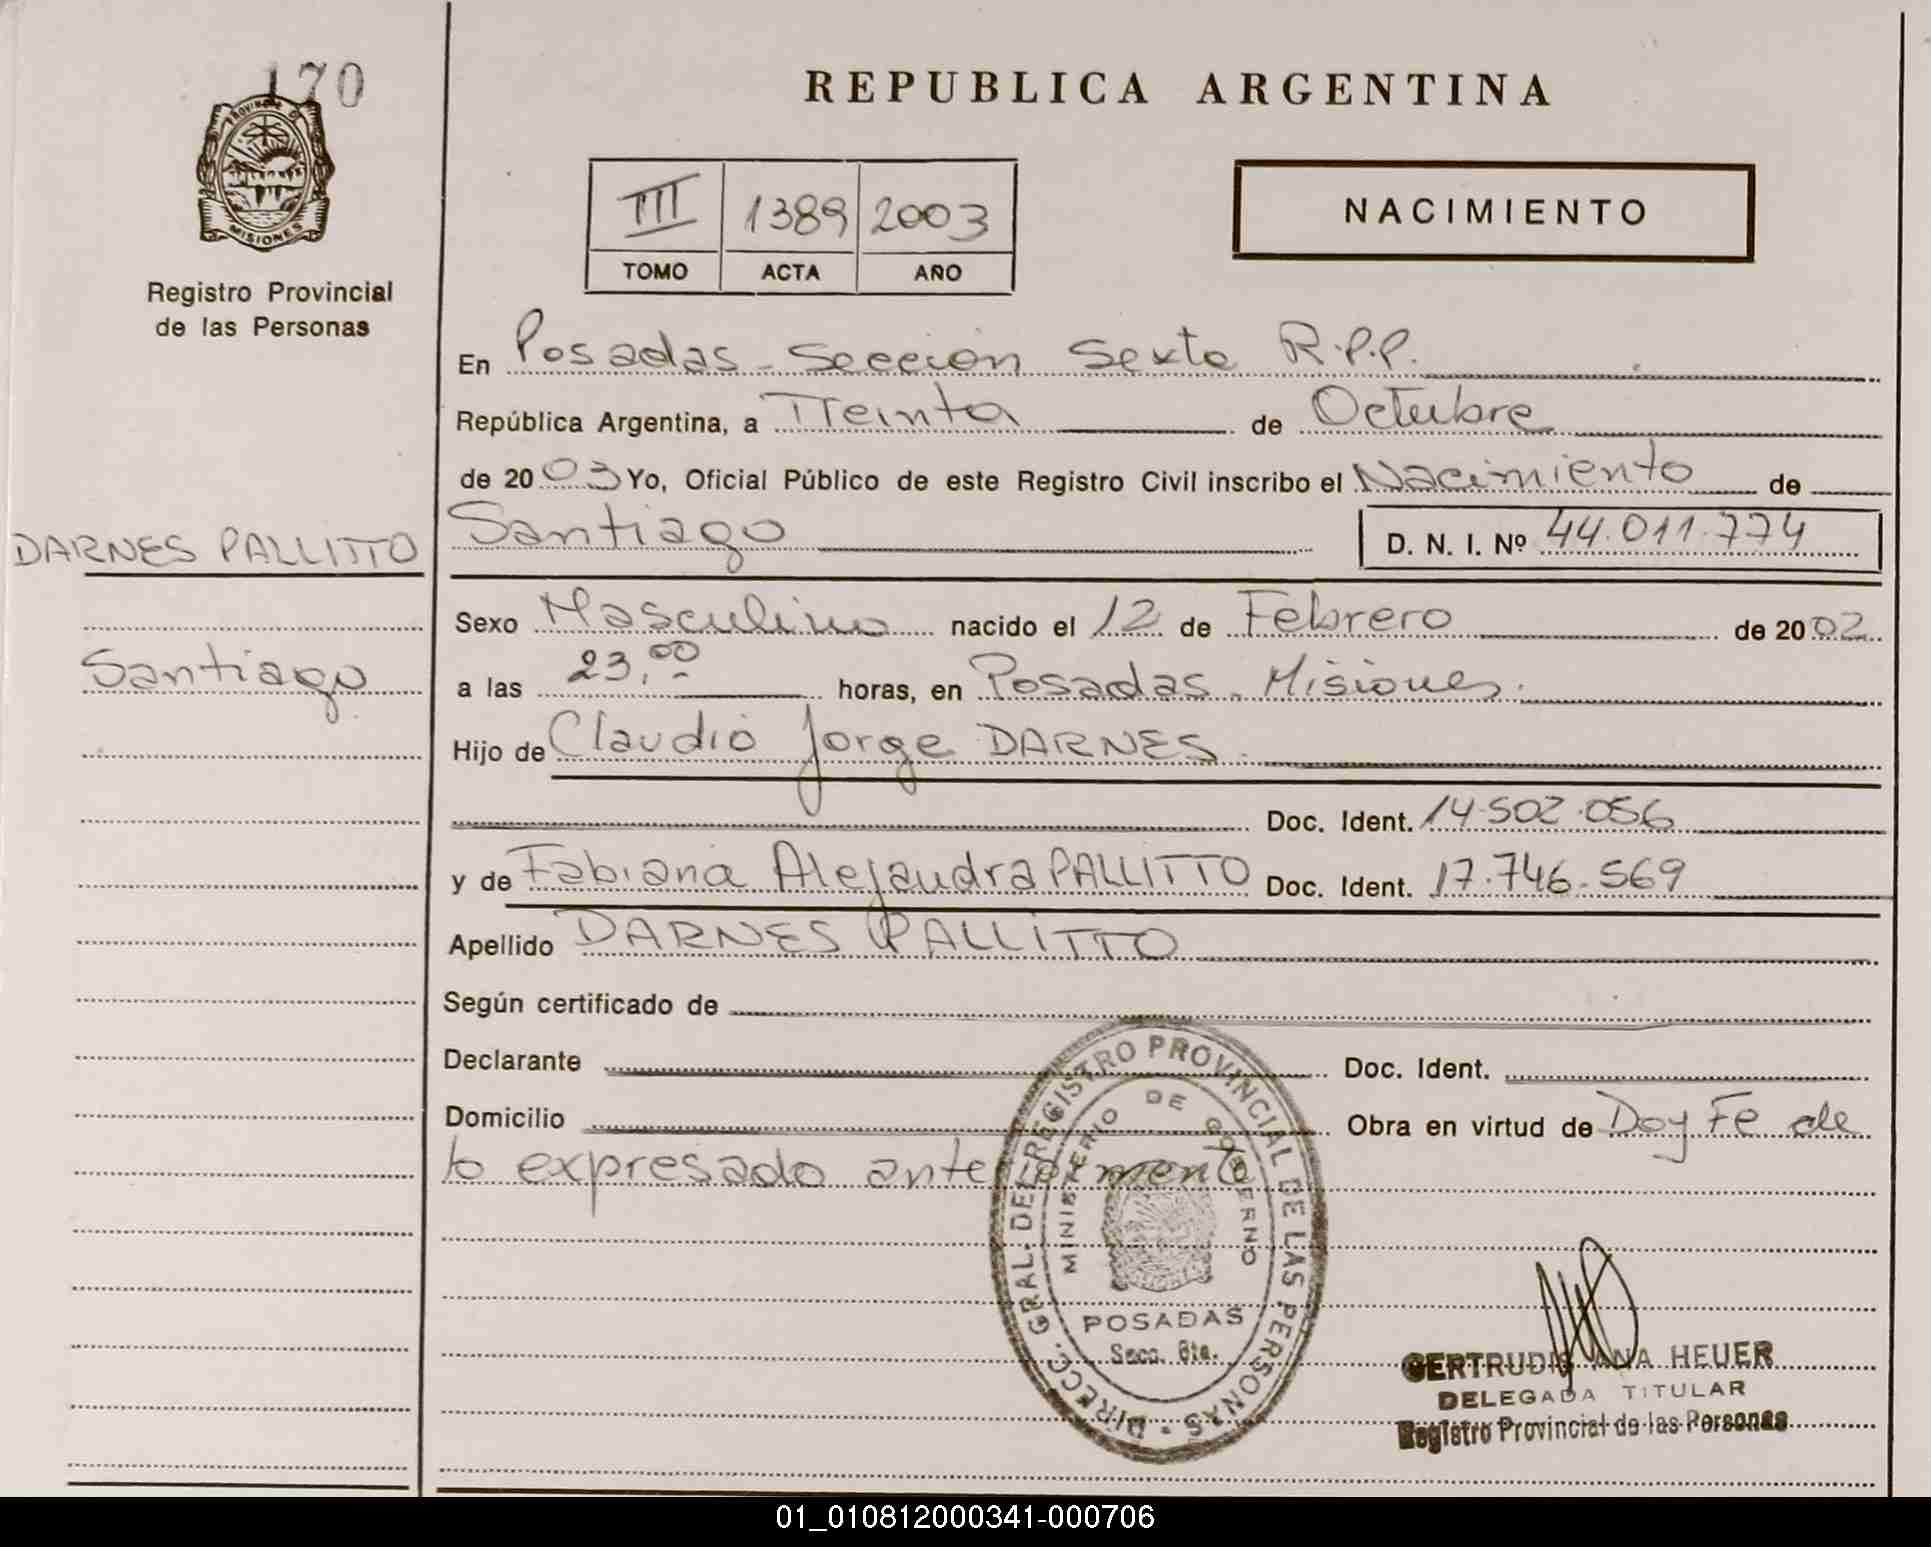 170
PROVINCIA DE
MISIONES
Registro Provincial
de las Personas
DARNES PALLITTO
Santiago
REPUBLICA ARGENTINA
III 1389 2003
TOMO ACTA AÑO
NACIMIENTO
En Posadas - Sección Sexta R.P.P.
República Argentina, a Treinta de Octubre
de 2003 Yo, Oficial Público de este Registro Civil inscribo el Nacimiento de
Santiago D. N. I. Nº 44.011.774
Sexo Masculino nacido el 12 de Febrero de 2002
a las 23,00 horas, en Posadas - Misiones.
Hijo de Claudio Jorge DARNES
Doc. Ident. 14.502.056
y de Fabiana Alejandra PALLITTO Doc. Ident. 17.746.569
Apellido DARNES PALLITTO
Según certificado de
Declarante Doc. Ident.
Domicilio Obra en virtud de Doy Fe de
lo expresado anteriormente
DIRECC. GRAL. DEL REGISTRO PROVINCIAL DE LAS PERSONAS
MINISTERIO DE GOBIERNO
POSADAS
Secc. 6ta.
GERTRUDIS ANA HEUER
DELEGADA TITULAR
Registro Provincial de las Personas
01_010812000341-000706